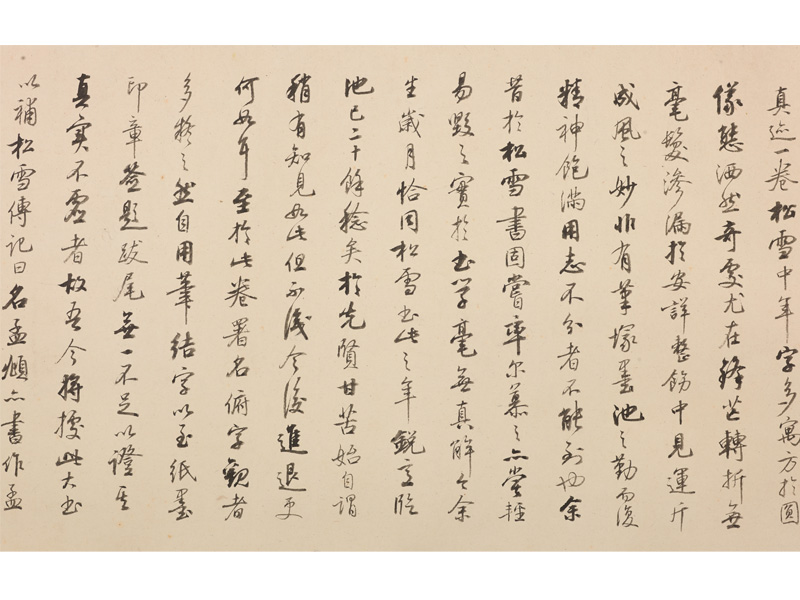 真迹一卷松雪中年字多寓方於圓
儀態洒然奇處尤在鋒芒轉折每
毫髮滲漏於安詳整飭中見運斤
成風之妙非有筆塚墨池之勤而復
精神飽滿用志不分者不能到也余
昔於松雪書固嘗率尔慕之亦嘗輕
易毀之實於書學毫無真解今余
生歲月恰同松雪書此之年銳意臨
池已二十餘稔矣於先賢甘苦始自謂
稍有知見如此但不識今後進退更
何如耳至於此卷署名俯字觀者
多疑之然自用筆結字以至紙墨
印章簽題跋尾無一不足以證其
真實不虛者故吾今將據此大書
以補松雪傳記曰名孟頫亦書作孟